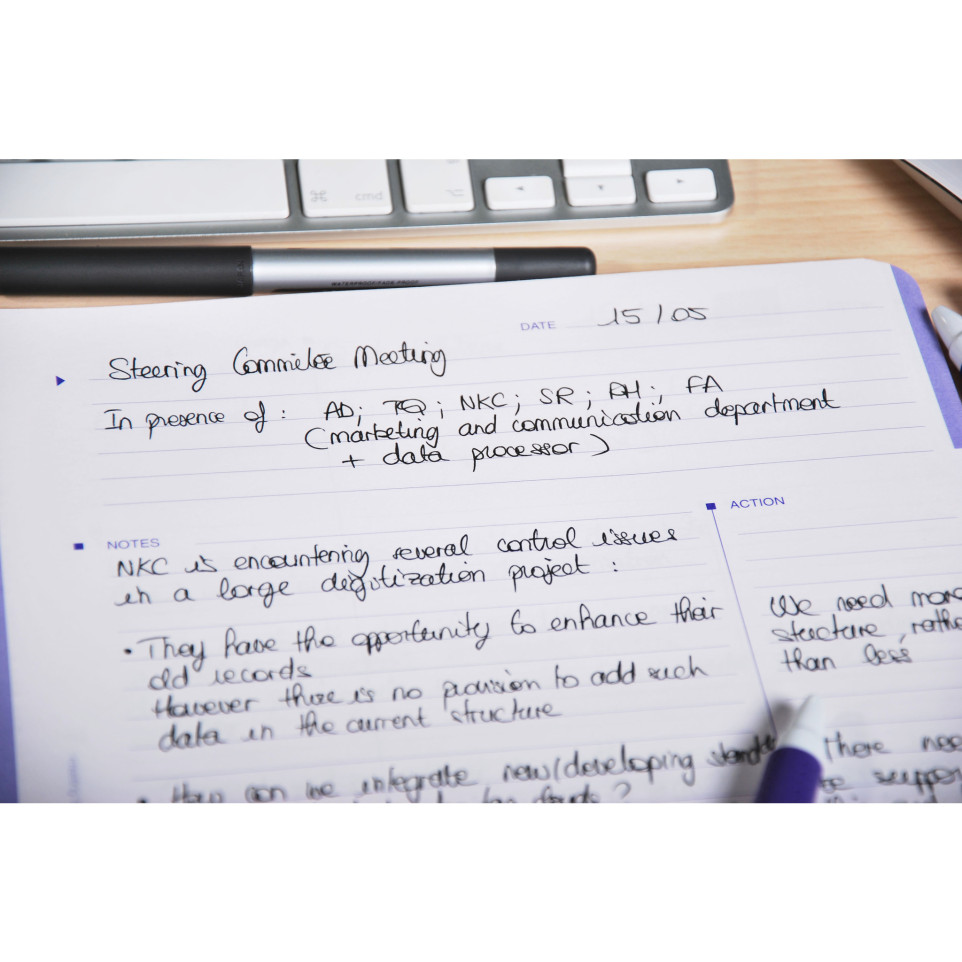 cmd
WATERPROOF/FADE PROOF
DATE 15/05
Steering Commitee Meeting
In presence of : AD; TQ; NKC; SR; AH; FA
(marketing and communication department
+ data processor)
NOTES
NKC is encountering several control issues
in a large digitization project :
• They have the opportunity to enhance their
old records
However there is no provision to add such
data in the current structure
• How can we integrate new/developing
ACTION
We need more
structure, rather
than less
there